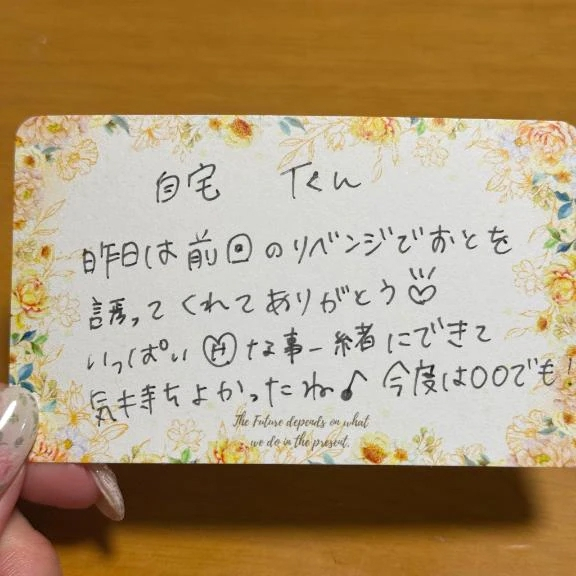 自宅 Tくん
昨日は前回のリベンジでおとを
誘ってくれてありがとう♡
いっぱいHな事一緒にできて
気持ちよかったね♪ 今度は〇〇でも!
The Future depends on what
we do in the present.